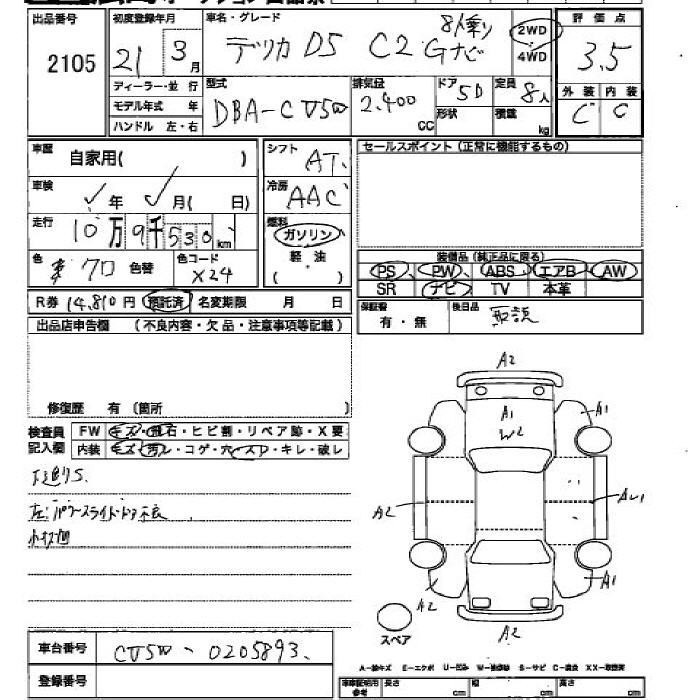 出品番号 2105
初度登録年月 21 3月
車名・グレード デリカ D5 C2 Gナビ 8人乗り
2WD 4WD
評価点 3.5
ディーラー・並 行
モデル年式 年
ハンドル 左・右
型式 DBA-CV5W
排気量 2.400 CC
ドア 5D
形状
定員 8人
積載 kg
外装 C 内装 C
車歴 自家用( )
車検 年 月( 日)
走行 10万9千530km
色 黒 色替
色コード X24
シフト AT.
冷房 AAC
燃料 ガソリン
軽・油
( )
セールスポイント (正常に機能するもの)
装備品 (純正品に限る)
PS PW ABS エアB AW
SR ナビ TV 本革
R券 14,810円 預託済 名変期限 月 日
保証書 有・無
後日品 取説
出品店申告欄 (不良内容・欠品・注意事項等記載)
修復歴 有 (箇所 )
検査員記入欄
FW キズ・飛石・ヒビ割・リペア跡・X要
内装 キズ・汚レ・コゲ・穴・スレ・キレ・破レ
下廻りS.
左:パワースライドドア不良
小キズ凹
A2
A1
W2
A1
A2
A2
A1
A2
スペア
車台番号 CV5W-0205893.
登録番号
A-線キズ E-エクボ U-凹み W-補修跡 S-サビ C-腐食 XX-取替済
車庫証明用参考 長さ cm 幅 cm 高さ cm